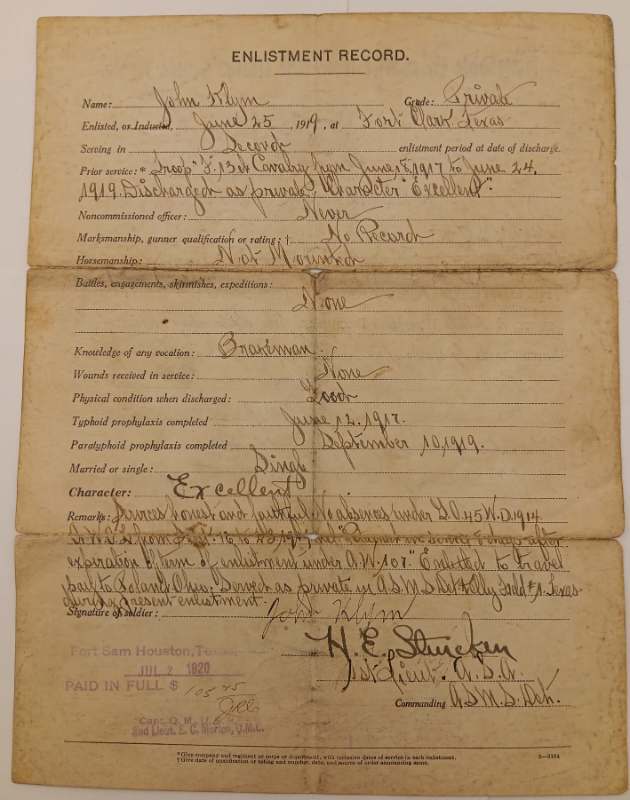 ENLISTMENT RECORD.
Name: John Klym Grade: Private
Enlisted, or Inducted, June 25, 1919, at Fort Clark, Texas
Serving in Second enlistment period at date of discharge.
Prior service:* Troop "F" 13th Cavalry from June 1917 to June 24,
1919. Discharged as private. "Character" Excellent".
Noncommissioned officer: Never
Marksmanship, gunner qualification or rating:† No Record
Horsemanship: Not Mounted
Battles, engagements, skirmishes, expeditions: None
Knowledge of any vocation: Brakeman
Wounds received in service: None
Physical condition when discharged: Good
Typhoid prophylaxis completed June 12. 1917.
Paratyphoid prophylaxis completed September 10, 1919.
Married or single: Single
Character: Excellent
Remarks: Services honest and faithful. No absences under G.O. 45 W.D. 1914
from 16 to
expiration of term of enlistment under A.W. 107." Entitled to travel
Ohio. Served as private in A.S.M.S. Det Kelly Field #1. Texas
during present enlistment.
Signature of soldier: John Klym
H. E. Sturcken
1st Lieut. A.S.A.
Commanding A.S.M.S. Det.
Fort Sam Houston, Texas
JUL 2 1920
PAID IN FULL $ 105 45
Capt. Q. M. U.S.
2nd Lieut. E. C. Morton, Q.M.C.
*Give company and regiment or corps or department, with inclusive dates of service in each enlistment.
†Give date of qualification or rating and number, date, and source of order announcing same.